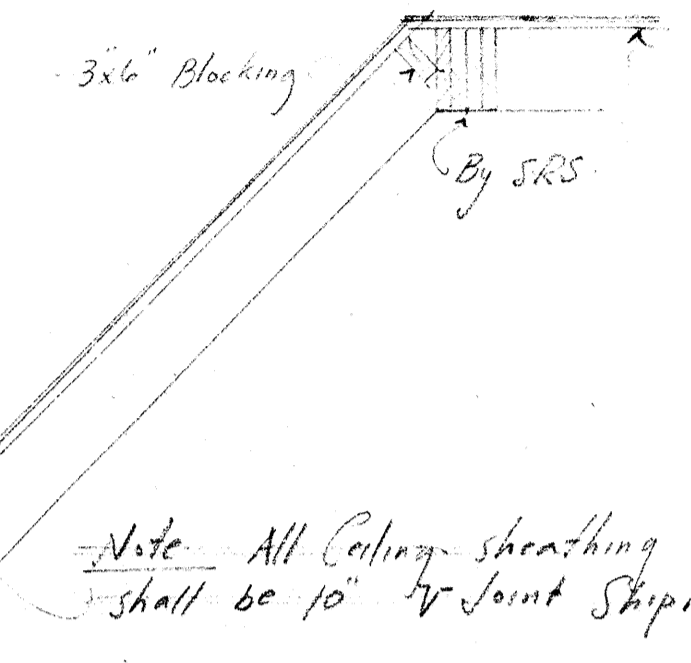 3"x6" Blocking
By SRS.
Note All Ceiling sheathing
shall be 10" V Joint Ship